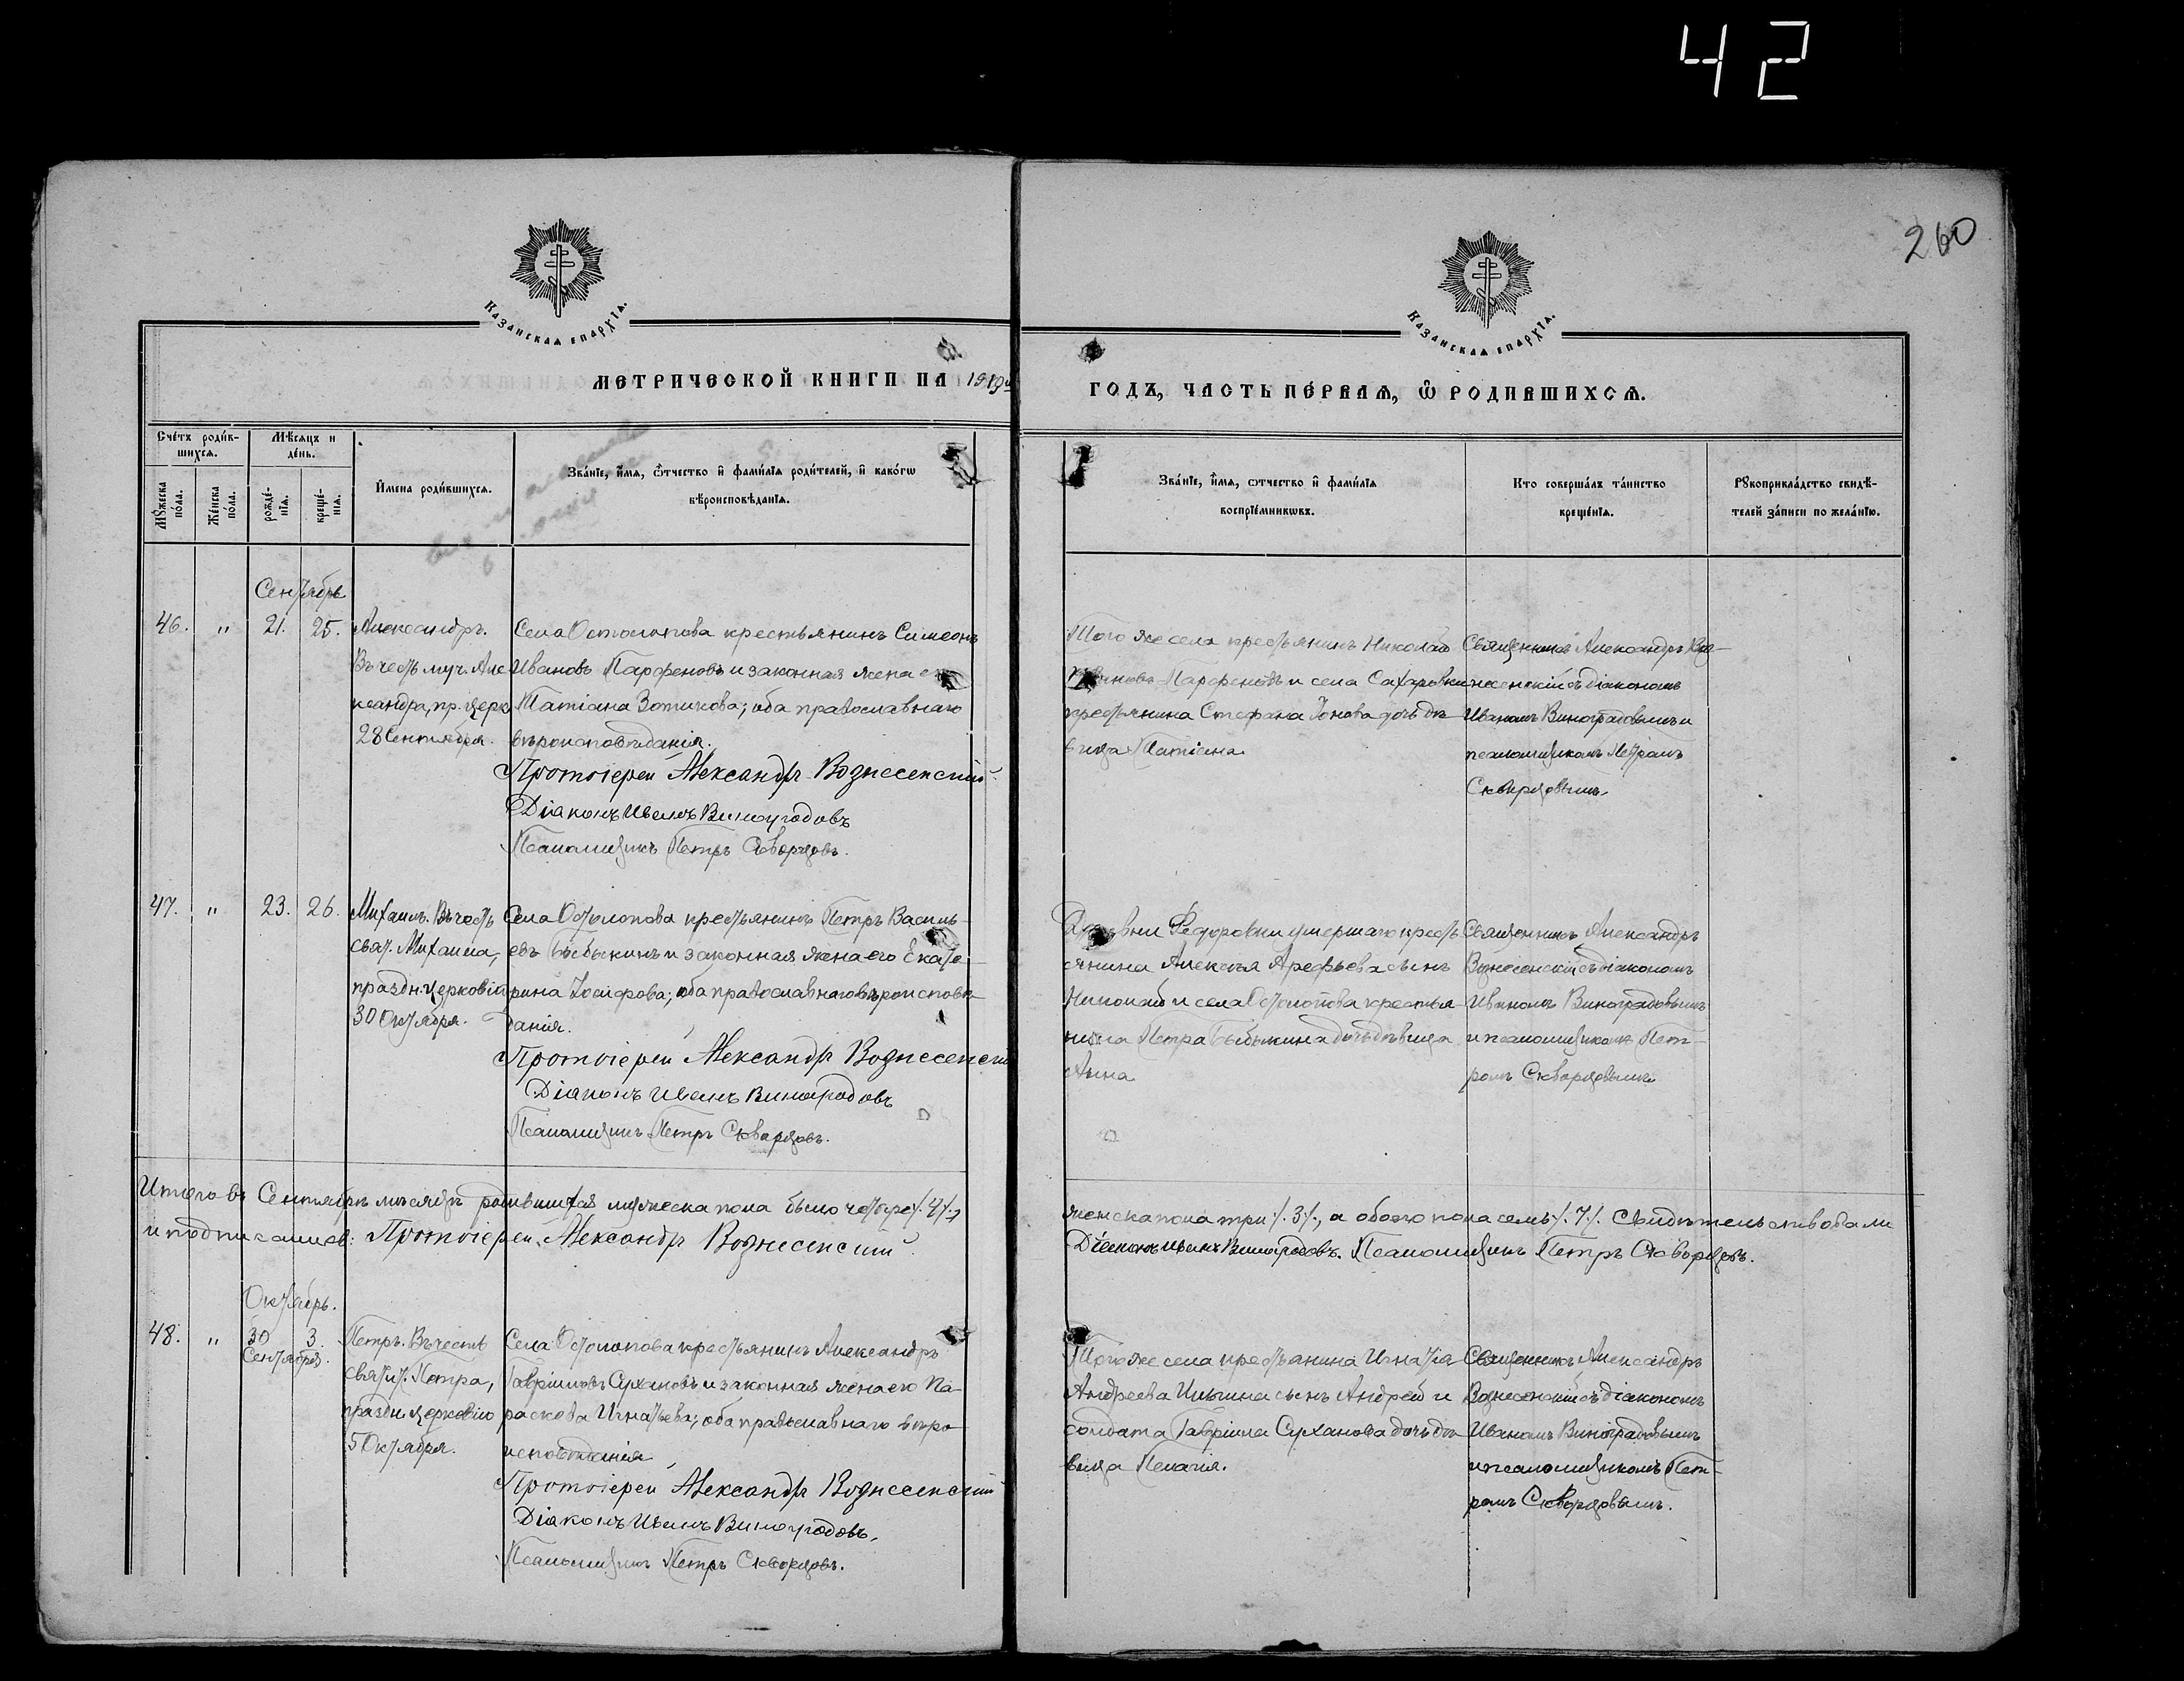 42
260
Казанская епархїа.
Казанская епархїа.
МЕТРИЧЕСКОЙ КНИГИ НА 1919й
ГОДЪ, ЧАСТЬ ПЕ́РВАѦ, Ѡ҆ РОДИВШИХСѦ.
Сче́тъ роди́в-
шихсѧ.
Мѣ́сѧцъ и
де́нь.
Мꙋ́жеска
по́ла.
Же́нска
по́ла.
рожде́-
нїѧ.
креще́-
нїѧ.
И҆мена роди́вшихсѧ.
Зва́нїе, и҆́мѧ, ѻ҆́тчество и҆ фами́лїѧ роди́телей, и҆ како́гѡ
вѣроисповѣ́данїѧ.
Зва́нїе, и҆́мѧ, ѻ҆́тчество и҆ фами́лїѧ
воспрїе́мникѡвъ.
Кто соверша́лъ та́инство
креще́нїѧ.
Рꙋкоприкла́дство свидѣ́-
телей за́писи по жела́нїю.
Сентябрь
46. " 21. 25.
Александръ.
Въ честь муч. Але
ксандра, пр. церк
28 Сентября.
Села Остолопова крестьянинъ Симеонъ
Ивановъ Парфеновъ и законная жена его
Татіана Зотикова; оба православнаго
вѣроисповѣданія.
Протоіерей Александръ Вознесенскій
Діаконъ Иванъ Виноградовъ
Псаломщикъ Петръ Скворцовъ.
Того же села крестьянинъ Николай
Ивановъ Парфеновъ и села Сахаровки
крестьянина Стефана Іонова дочь дѣ
вица Татіана
Священникъ Александръ Воз-
несенскій съ діакономъ
Иваномъ Виноградовымъ и
псаломщикомъ Петромъ
Скворцовымъ.
47. " 23. 26.
Михаилъ. Въ честь
свят. Михаила,
праздн. церковію
30 Октября.
Села Остолопова крестьянинъ Петръ Василь-
евъ Бабыкинъ и законная жена его Екате-
рина Іосифова; оба православнаго вѣроисповѣ-
данія.
Протоіерей Александръ Вознесенскій
Діаконъ Иванъ Виноградовъ
Псаломщикъ Петръ Скворцовъ.
Деревни Федоровки умершаго кресть
янина Алексѣя Арефьева сынъ
Николай и села Остолопова крестья-
нина Петра Бабыкина дочь дѣвица
Анна
Священникъ Александръ
Вознесенскій съ діакономъ
Иваномъ Виноградовымъ
и псаломщикомъ Пет-
ромъ Скворцовымъ
Итого въ Сентябрѣ мѣсяцѣ родившихся мужеска пола было четыре ⁒ 4 ⁒,
женска пола три ⁒ 3 ⁒, а обоего пола семь ⁒ 7 ⁒. Свидѣтельствовали
и подписались: Протоіерей Александръ Вознесенскій
Діаконъ Иванъ Виноградовъ. Псаломщикъ Петръ Скворцовъ.
Октябрь.
48. " 30 3.
Сентября.
Петръ. Въ честь
святит. Петра,
праздн. церковію
5 Октября.
Села Остолопова крестьянинъ Александръ
Гавріиловъ Сухановъ и законная жена его Па-
раскева Игнатьева; оба православнаго вѣро
исповѣданія
Протоіерей Александръ Вознесенскій
Діаконъ Иванъ Виноградовъ.
Псаломщикъ Петръ Скворцовъ.
Того же села крестьянина Игнатія
Андреева Ильина сынъ Андрей и
солдата Гавріила Суханова дочь дѣ
вица Пелагія.
Священникъ Александръ
Вознесенскій съ діакономъ
Иваномъ Виноградовымъ
и псаломщикомъ Пет-
ромъ Скворцовымъ.